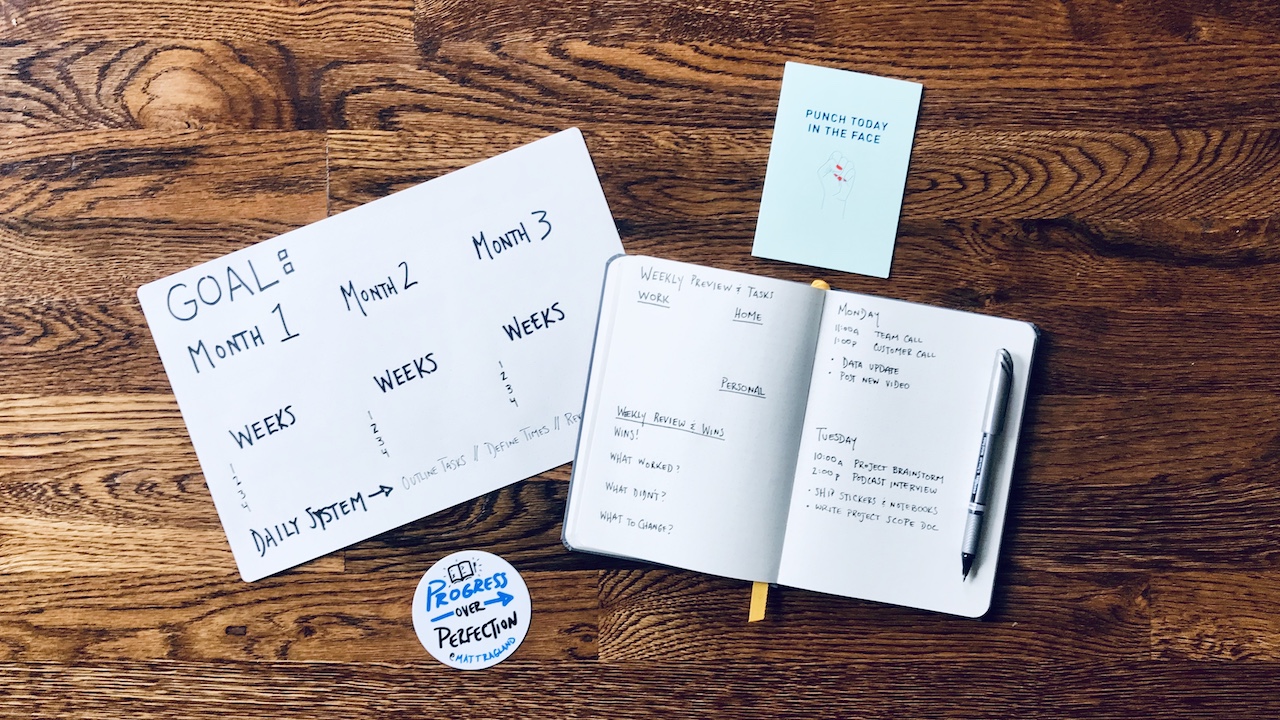 GOAL:
MONTH 1
WEEKS
1
2
3
4
MONTH 2
WEEKS
1
2
3
4
MONTH 3
WEEKS
1
2
3
4
DAILY SYSTEM → OUTLINE TASKS // DEFINE TIMES //
PUNCH TODAY
IN THE FACE
WEEKLY PREVIEW & TASKS
WORK
HOME
PERSONAL
WEEKLY REVIEW & WINS
WINS!
WHAT WORKED?
WHAT DIDN'T?
WHAT TO CHANGE?
MONDAY
11:00A TEAM CALL
1:00P CUSTOMER CALL
• DATA UPDATE
• POST NEW VIDEO
TUESDAY
10:00A PROJECT BRAINSTORM
2:00P PODCAST INTERVIEW
• SHIP STICKERS & NOTEBOOKS
• WRITE PROJECT SCOPE DOC
PROGRESS
OVER
PERFECTION
@MATTRAGLAND